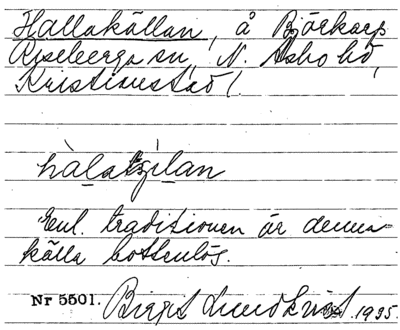 Hallakällan, å Björkarp
Riseberga sn, N. Åsbo hd,
Kristianstad l.
hàlatɕilan
Enl. traditionen är denna
källa bottenlös.
Nr 5501. Birgit Lundkvist 1935.